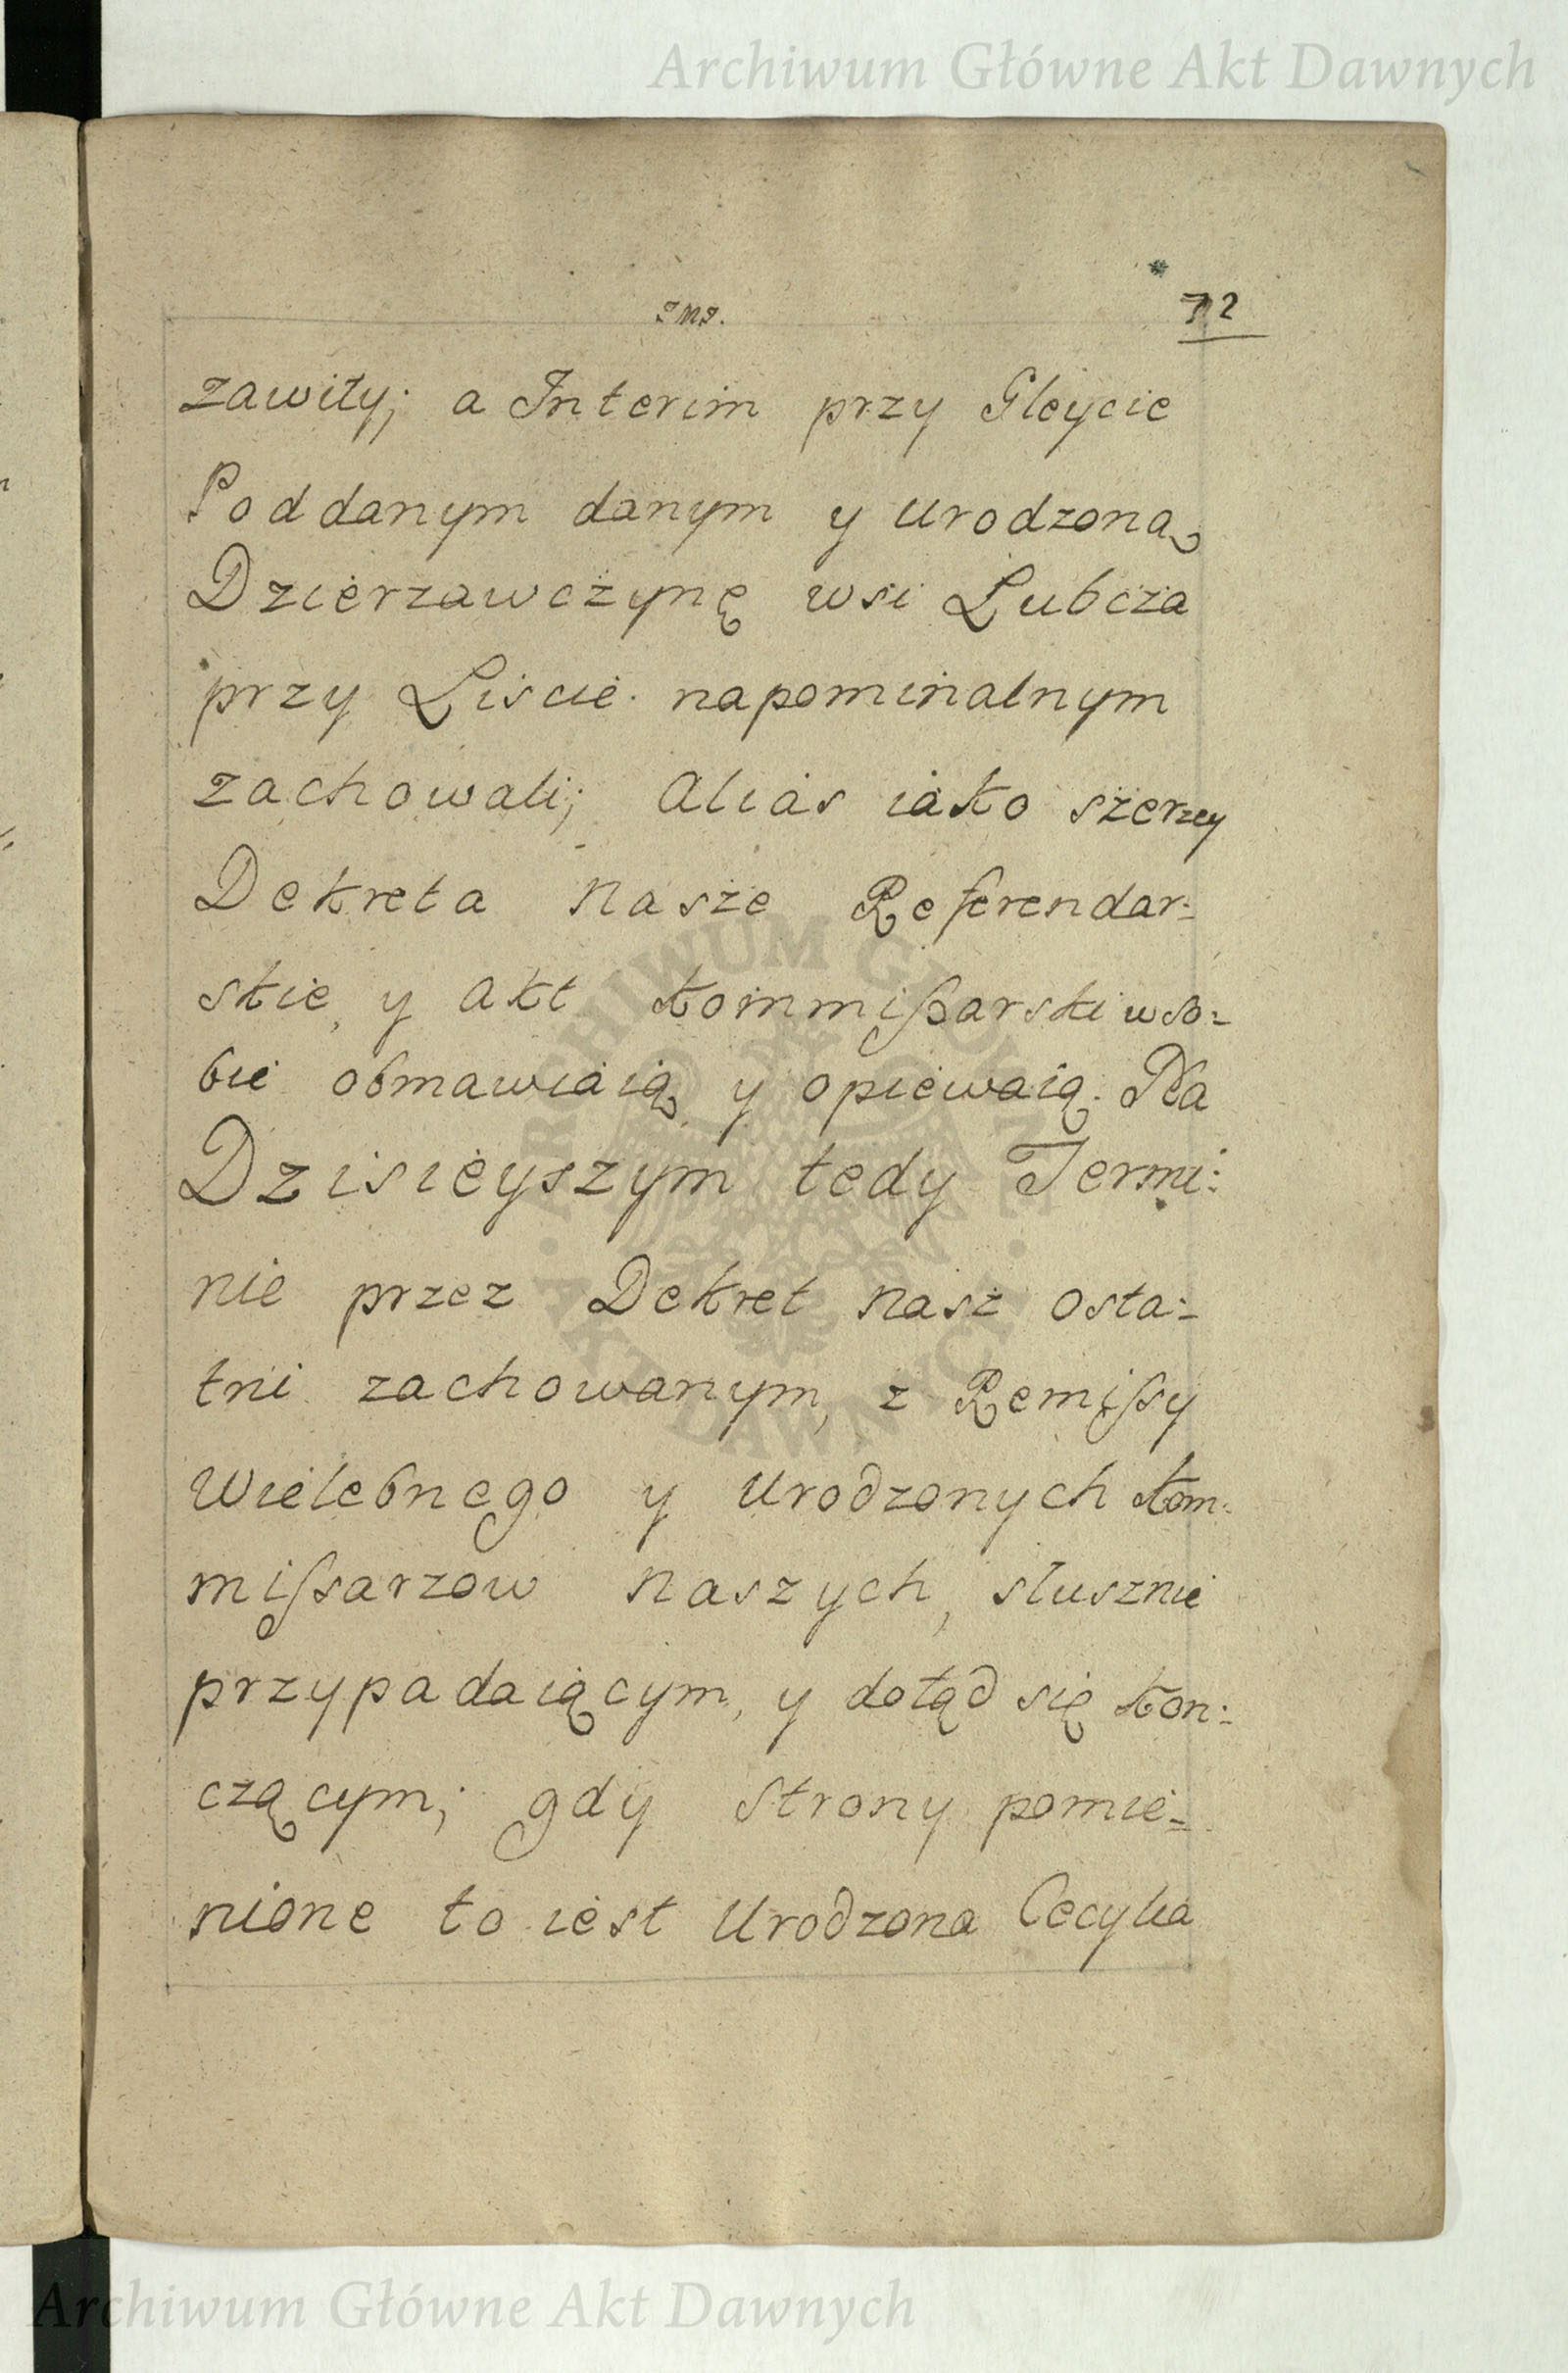 Archiwum Główne Akt Dawnych
72
zawiły; a Interim przy Gleycie
Poddanym danym y Urodzoną
Dzierzawczynę wsi Lubcza
przy Liscie napominalnym
zachowali; Alias iako szerzey
Dekreta Nasze Referendar=
skie, y Akt Kommißarski w so=
bie obmawiaią y opiewaią. Na
Dzisieyszym tedy Termi=
nie przez Dekret Nasz osta=
tni zachowanym, z Remißy
Wielebnego y Urodzonych Kom=
mißarzow Naszych, słusznie
przypadaiącym, y dotąd się kon=
czącym; gdy Strony pomie=
nione to iest Urodzona Cecylia
ARCHIWUM GŁÓWNE AKT DAWNYCH
Archiwum Główne Akt Dawnych